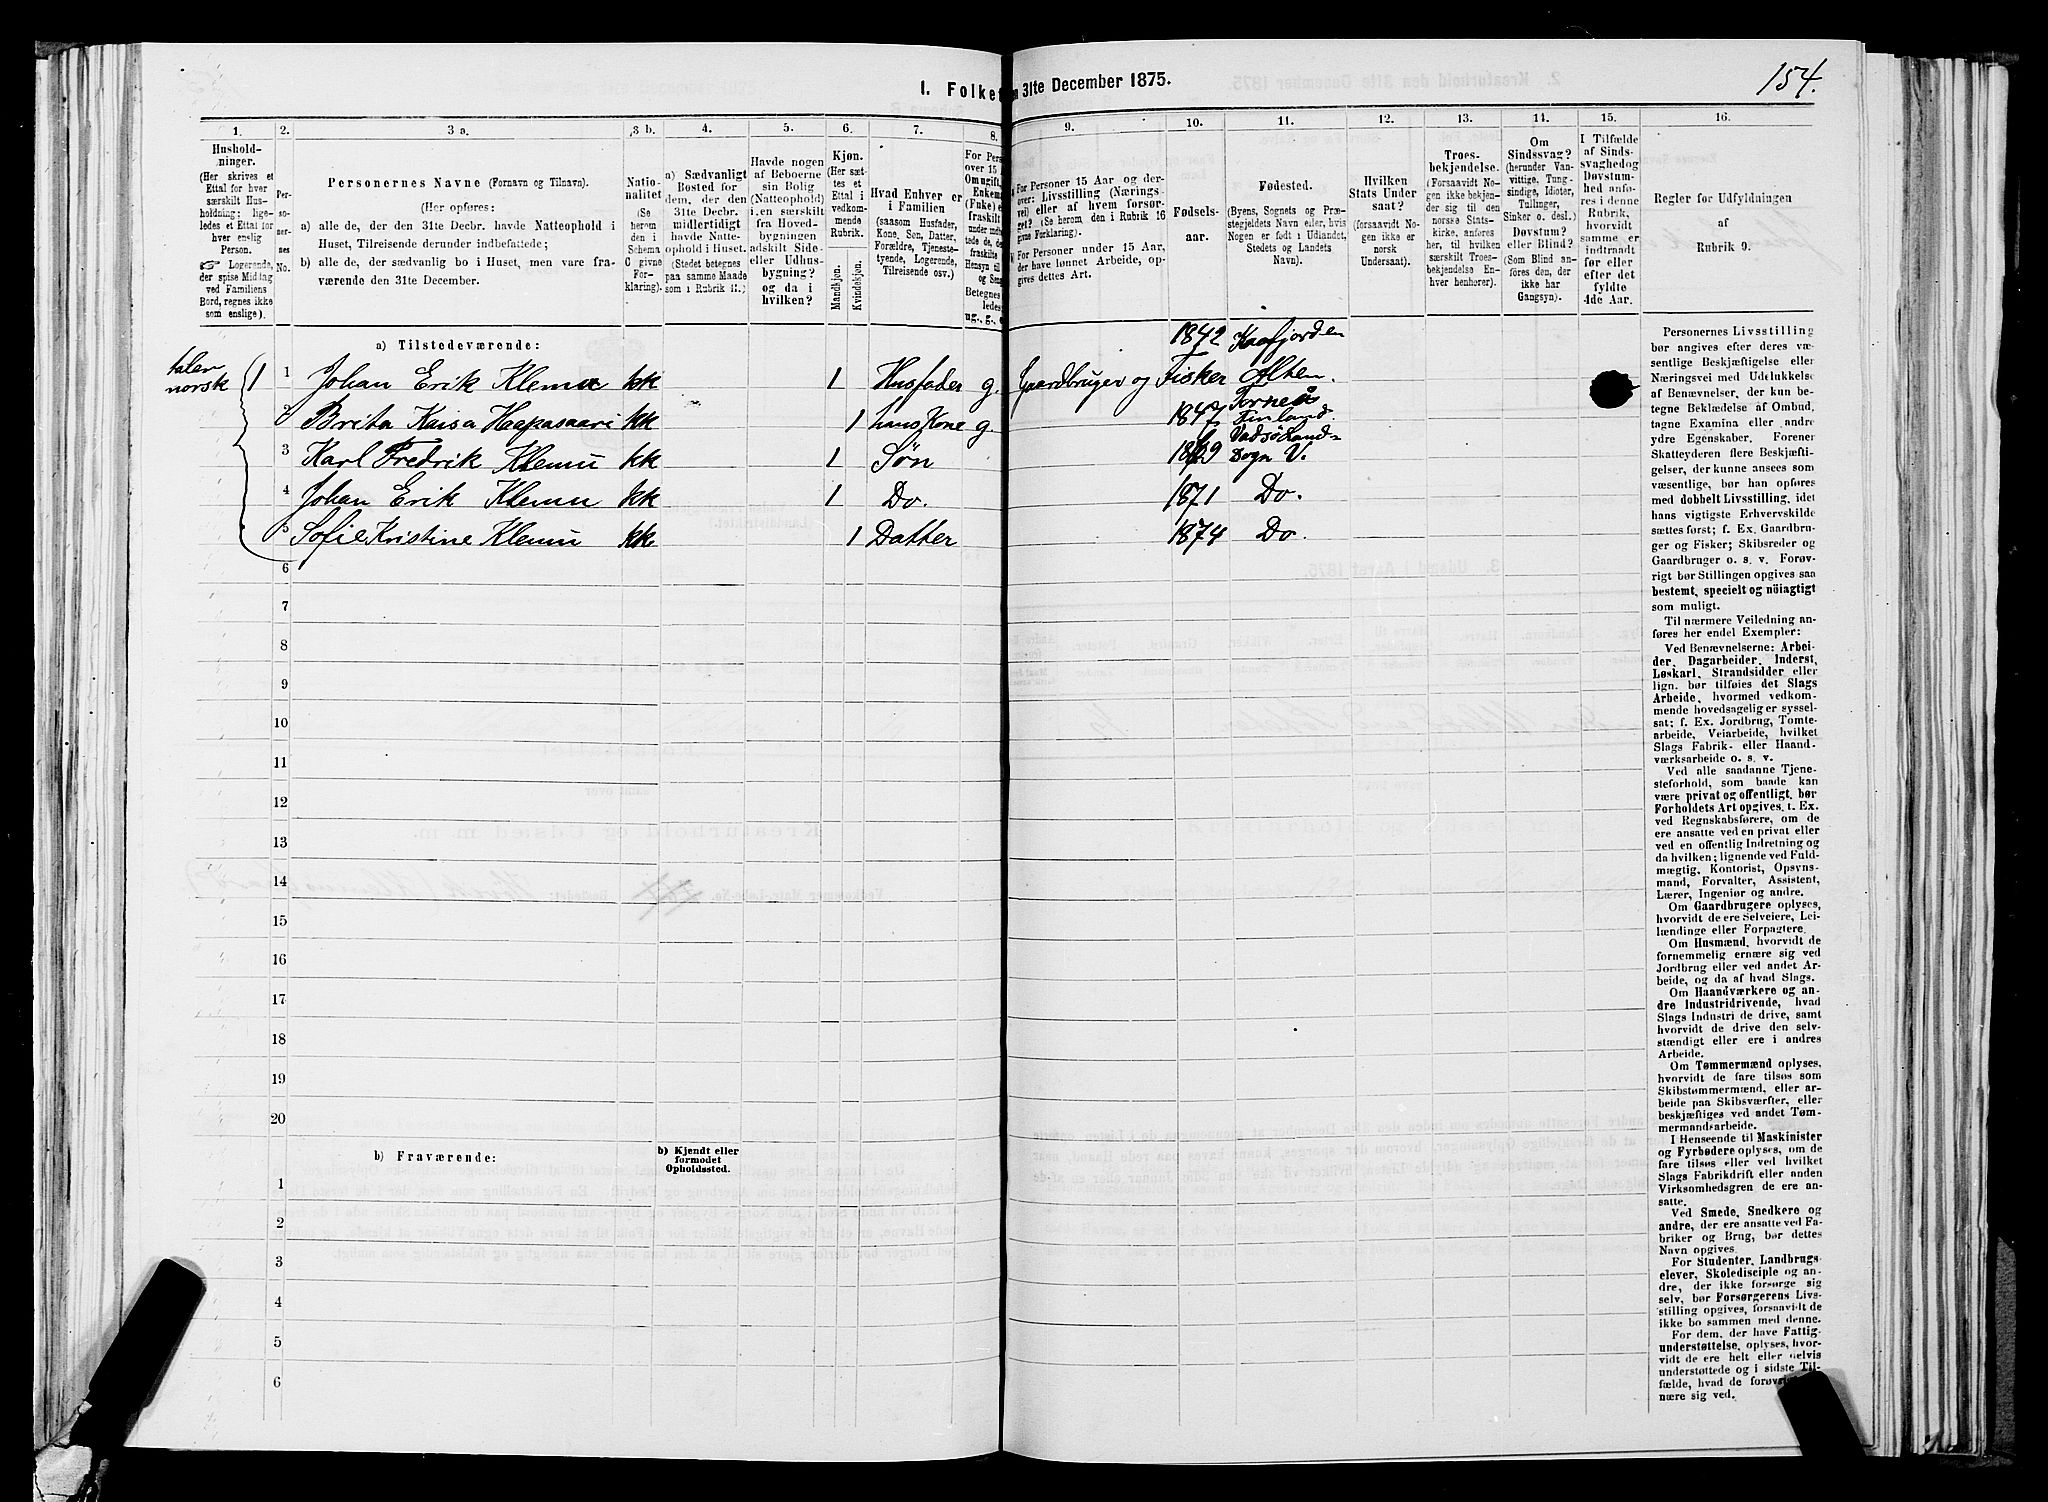 154.
1. Folket
n 31te December 1875.
1. 2. 3 a. 3 b. 4. 5. 6. 7. 8. 9. 10. 11. 12. 13. 14. 15. 16.
Hushold-
ninger.
(Her skrives et
Ettal for hver
særskilt Hus-
holdning; lige-
ledes et Ettal for
hver enslig
Person.
☞ Logerende,
der spise Middag
ved Familiens
Bord, regnes ikke
som enslige).
Per-
so-
ner-
nes
No.
Personernes Navne (Fornavn og Tilnavn).
(Her opføres:
a) alle de, der den 31te Decbr. havde Natteophold i
Huset, Tilreisende derunder indbefattede;
b) alle de, der sædvanlig bo i Huset, men vare fra-
værende den 31te December.
Natio-
nalitet
(Se
herom
den i
Schema
C givne
For-
klaring).
a) Sædvanligt
Bosted for
dem, der den
31te Decbr.
midlertidigt
havde Natte-
ophold i Huset.
(Stedet betegnes
paa samme Maade
som i Rubrik 11.)
Havde nogen
af Beboerne
sin Bolig
(Natteophold)
i en særskilt
fra Hoved-
bygningen
adskilt Side-
eller Udhus-
bygning?
og da i
hvilken?
Kjøn.
(Her sæt-
tes et
Ettal i
vedkom-
mende
Rubrik.
Mandkjøn.
Kvindekjøn.
Hvad Enhver er
i Familien
(saasom Husfader,
Kone, Søn, Datter,
Forældre, Tjeneste-
tyende, Logerende,
Tilreisende osv.)
For Pers
over 15
Om ugift,
Enkem
(Fuke) e
fraskilt
under indt
tede de,
fraskilte
Hensyn til
og Sen
Betegnes
ledes
ug., g., e
For Personer 15 Aar og der-
over: Livsstilling (Nærings
vei) eller af hvem forsør-
get? (Se herom, den i Rubrik 16
givne Forklaring).
For Personer under 15 Aar,
der have lønnet Arbeide, op-
gives dettes Art.
Fødsels-
aar.
Fødested.
(Byens, Sognets og Præ-
stegjeldets Navn eller, hvis
Nogen er født i Udlandet,
Stedets og Landets
Navn).
Hvilken
Stats Under
saat?
(forsaavidt No-
gen ikke er
norsk
Undersaat).
Troes-
bekjendelse.
(Forsaavidt No-
gen ikke bekjen-
der sig til den
norske Stats-
kirke, anføres
her, til hvilken
særskilt Troes-
bekjendelse En-
hver henhører).
Om
Sindssvag?
(herunder Van-
vittige, Tung-
sindige, Idioter,
Tullinger,
Sinker o. desl.)
Døvstum?
eller Blind?
(Som Blind an-
føres den, der
ikke har
Gangsyn).
I Tilfælde
af Sinds-
svaghed og
Døvstum-
hed anfø-
res i denne
Rubrik,
hvorvidt
samme er
indtraadt
før eller
efter det
fyldte
4de Aar.
Regler for Udfyldningen
af
Rubrik 9.
a) Tilstedeværende:
1842 Kaafjorden
taler
norsk
1 1 Johan Erik Klemu kk 1 Husfader g. Gaardbruger og Fisker Alten.
Torneå
2 Brita Kaisa Haapasaari kk 1 hans Kone g. 1847 Finland.
Vadsø Land-
3 Karl Fredrik Klemu kk 1 Søn 1869 Sogn V.
4 Johan Erik Klemu kk 1 Do. 1871 Do.
5 Sofie Kristine Klemu kk 1 Datter 1874 Do.
6
7
8
9
10
11
12
13
14
15
16
17
18
19
20
b) Fraværende:
b) Kjendt eller
formodet
Opholdssted.
1
2
3
4
5
6
Personernes Livsstilling
bør angives efter deres væ-
sentlige Beskjæftigelse eller
Næringsvei med Udelukkelse
af Benævnelser, der kun be-
tegne Beklædelse af Ombud,
tagne Examina eller andre
ydre Egenskaber. Forener
Skatteyderen flere Beskjæfti-
gelser, der kunne ansees som
væsentlige, bør han opføres
med dobbelt Livsstilling, idet
hans vigtigste Erhvervskilde
sættes først; f. Ex. Gaardbru-
ger og Fisker; Skibsreder og
Gaardbruger o. s. v. Forøv-
rigt bør Stillingen opgives saa
bestemt, specielt og nöiagtigt
som muligt.
Til nærmere Veiledning an-
føres her endel Exempler:
Ved Benævnelserne: Arbei-
der, Dagarbeider, Inderst,
Løskarl, Strandsidder eller
lign. bør tilføies det Slags
Arbeide, hvormed vedkom-
mende hovedsagelig er syssel-
sat; f. Ex. Jordbrug, Tomte-
arbeide, Veiarbeide, hvilket
Slags Fabrik- eller Haand-
værksarbeide o. s. v.
Ved alle saadanne Tjene-
steforhold, som baade kan
være privat og offentligt, bør
Forholdets Art opgives, t. Ex.
ved Regnskabsførere, om de
ere ansatte ved en privat eller
ved en offentlig Indretning og
da hvilken; lignende ved Fuld-
mægtig, Kontorist, Opsyns-
mand, Forvalter, Assistent,
Lærer, Ingeniør og andre.
Om Gaardbrugere oplyses,
hvorvidt de ere Selveiere, Lei-
lændinge eller Forpagtere.
Om Husmænd, hvorvidt de
fornemmelig ernære sig ved
Jordbrug eller ved andet Ar-
beide, og da af hvad Slags.
Om Haandværkere og an-
dre Industridrivende, hvad
Slags Industri de drive, samt
hvorvidt de drive den selv-
stændigt eller ere i andres
Arbeide.
Om Tømmermænd oplyses,
hvorvidt de fare tilsøs som
Skibstømmermænd, eller ar-
beide paa Skibsværfter, eller
beskjæftiges ved andet Tøm-
mermandsarbeide.
I Henseende til Maskinister
og Fyrbødere oplyses, om de
fare tilsøs eller ved hvilket
Slags Fabrikdrift eller anden
Virksomhedsgren de ere an-
satte.
Ved Smede, Snedkere og
andre, der ere ansatte ved Fa-
briker og Brug, bør dettes
Navn opgives.
For Studenter, Landbrugs-
elever, Skoledisciple og an-
dre, der ikke forsørge sig
selv, bør Forsørgerens Livs-
stilling opgives, forsaavidt de
ikke bo sammen med denne.
For dem, der have Fattig-
understøttelse, oplyses, hvor-
vidt de ere helt eller delvis
understøttede og i sidste Til-
fælde, hvad de forøvrigt
nære sig ved.